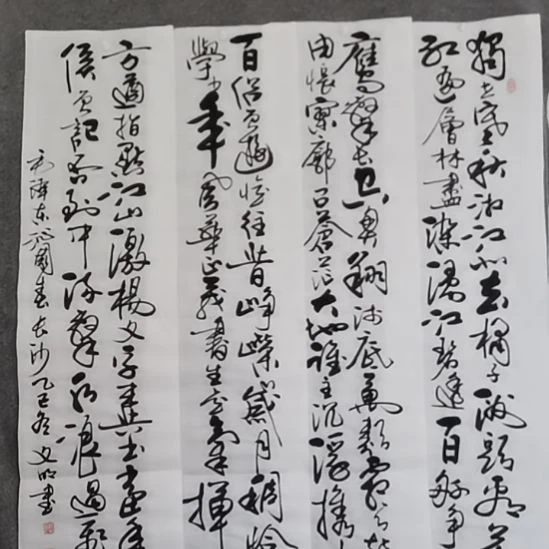 獨立寒秋湘江北去橘子洲頭看萬
紅遍層林盡染漫江碧透百舸爭
鷹擊長空魚翔淺底萬類霜天
由悵寥廓问蒼茫大地誰主沉浮携
百侶曾遊憶往昔崢嶸歲月稠恰
學少年風華正茂書生意氣揮
方遒指點江山激揚文字糞土當年
侯曾記否到中流擊水浪遏飛
毛澤東沁園春長沙乙巳冬文明書